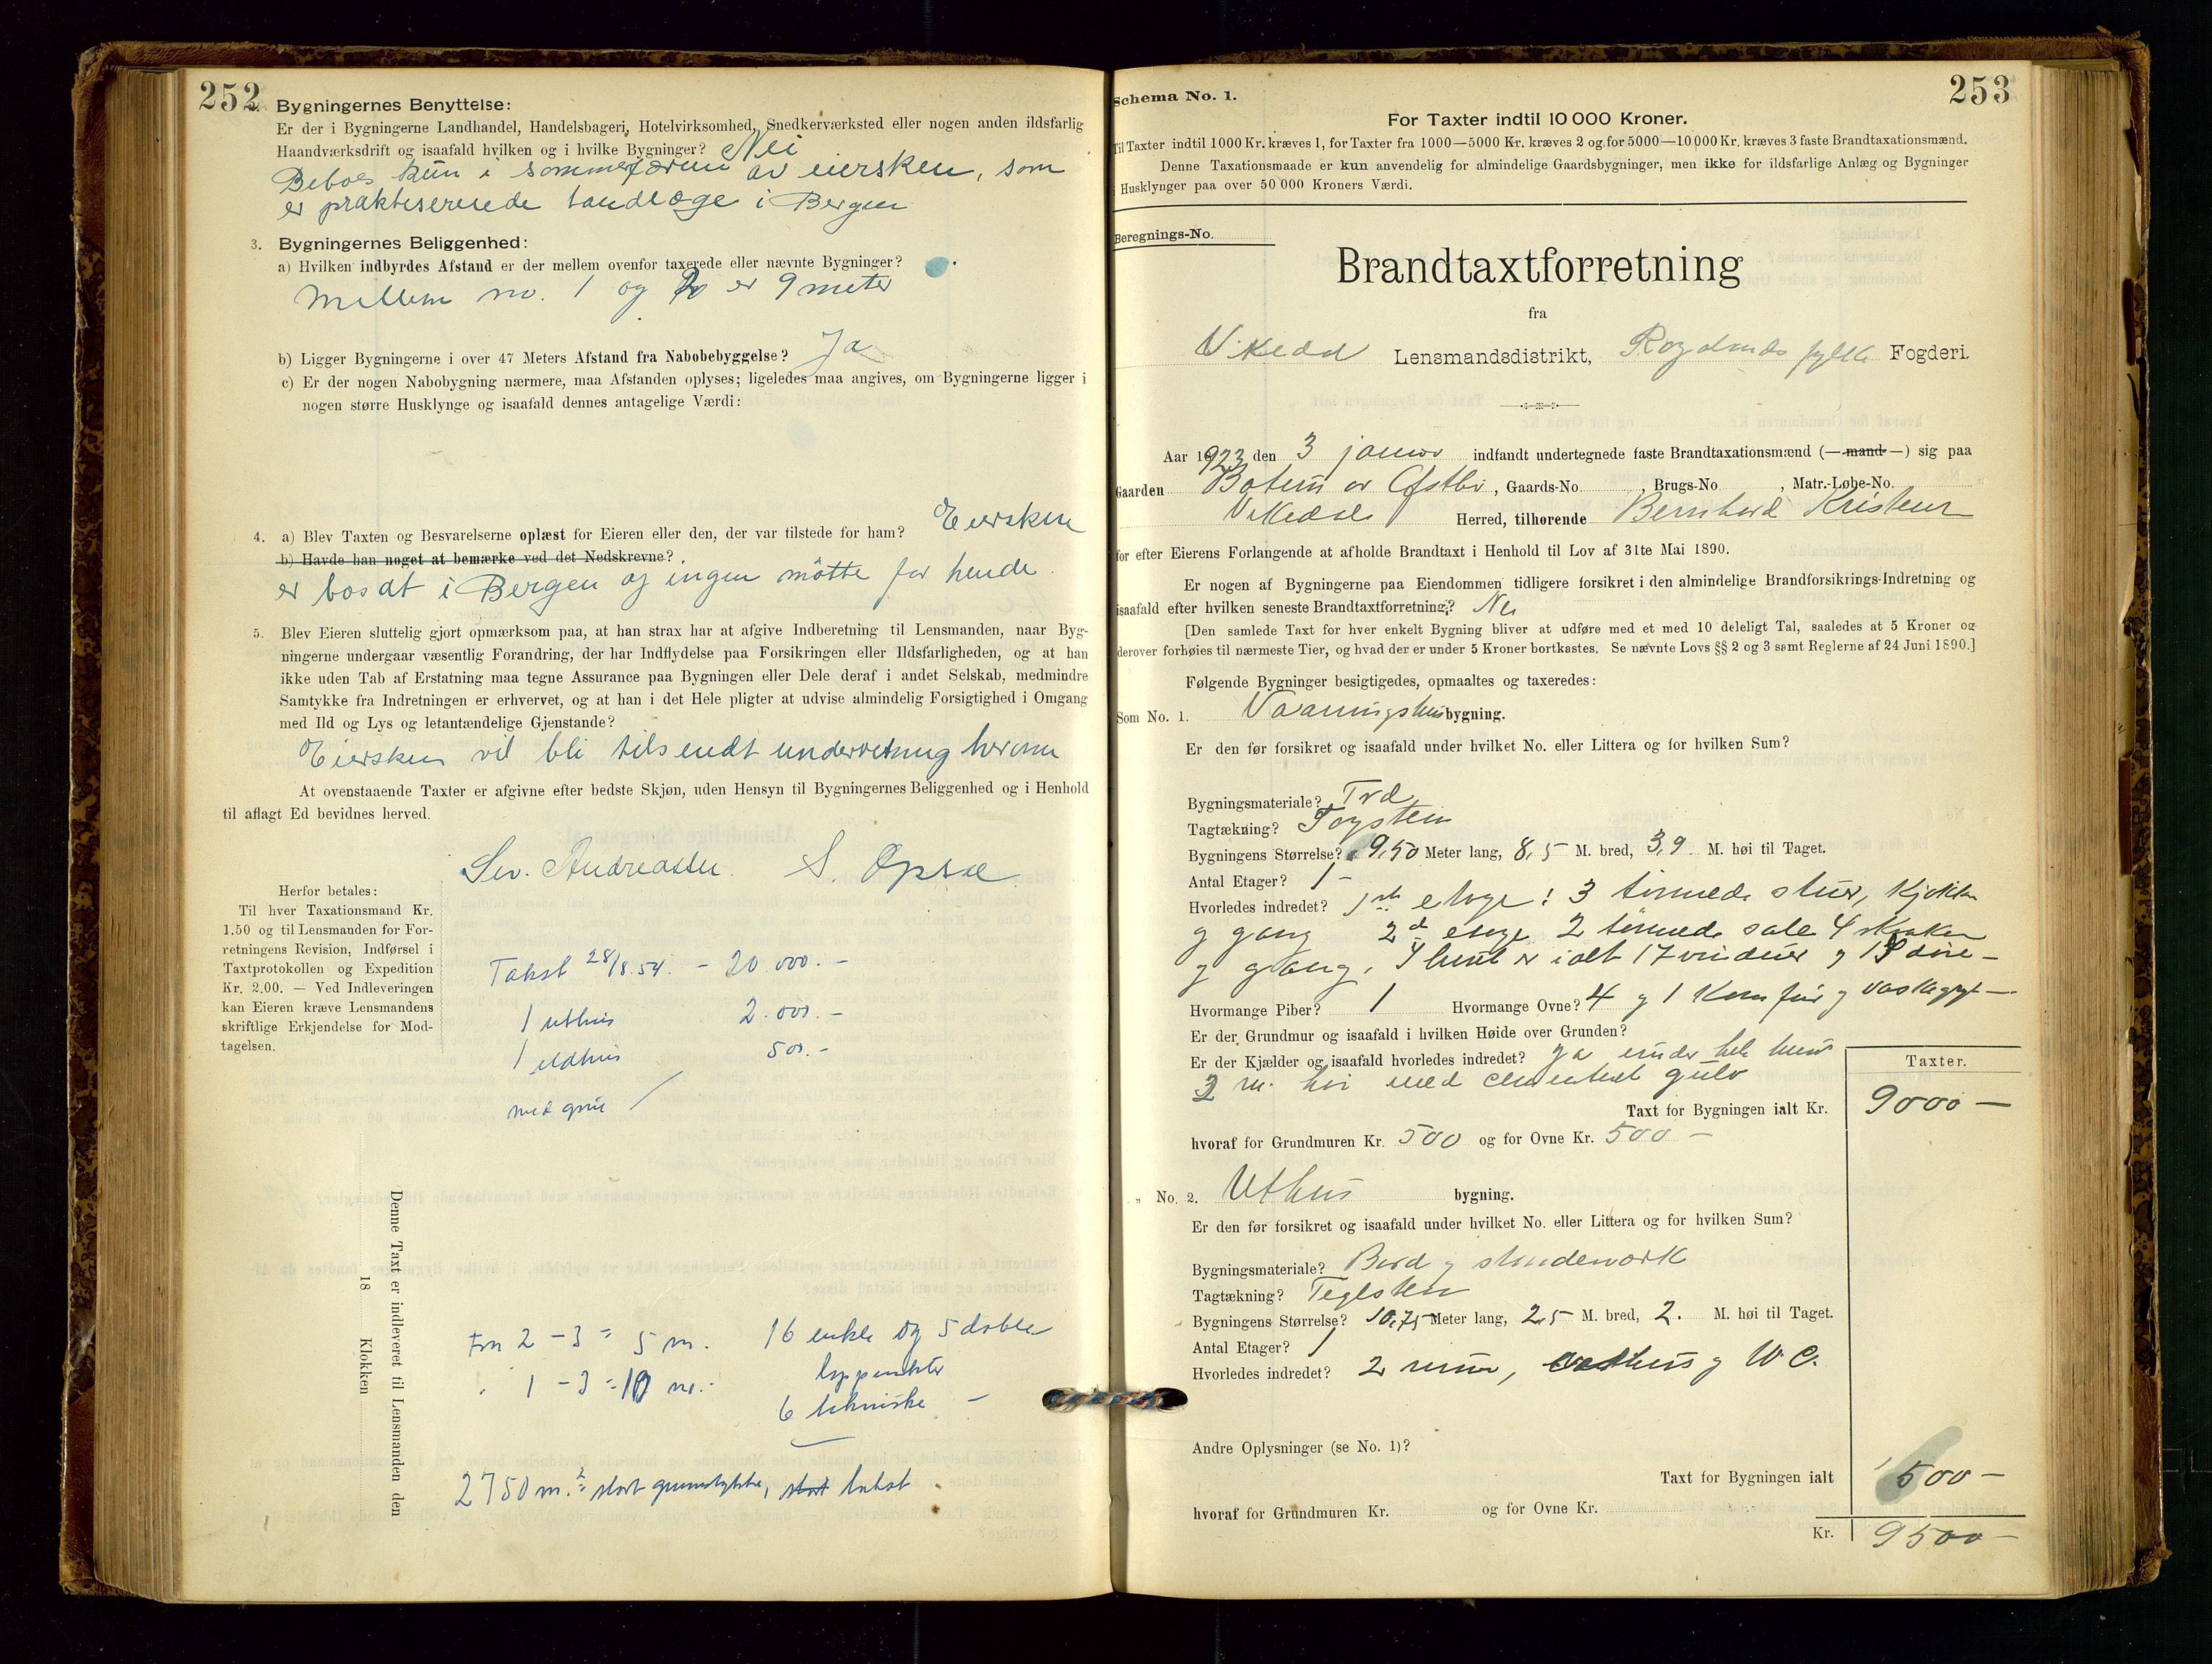 252
2. Bygningernes Benyttelse:
Er der i Bygningerne Landhandel, Handelsbageri, Hotelvirksomhed, Snedkerværksted eller nogen anden ildsfarlig
Haandværksdrift og isaafald hvilken og i hvilke Bygninger? Nei
Beboes kun i sommerferien av eiersken, som
er praktiserende tandlæge i Bergen
3. Bygningernes Beliggenhed:
a) Hvilken indbyrdes Afstand er der mellem ovenfor taxerede eller nævnte Bygninger?
Mellem no. 1 og 2 er 9 meter
b) Ligger Bygningerne i over 47 Meters Afstand fra Nabobebyggelse? Ja
c) Er der nogen Nabobygning nærmere, maa Afstanden oplyses; ligeledes maa angives, om Bygningerne ligger i
nogen større Husklynge og isaafald dennes antagelige Værdi:
4. a) Blev Taxten og Besvarelserne oplæst for Eieren eller den, der var tilstede for ham? Eiersken
b) Havde han noget at bemærke ved det Nedskrevne?
er bosdt i Bergen og ingen møtte for hende.
5. Blev Eieren sluttelig gjort opmærksom paa, at han strax har at afgive Indberetning til Lensmanden, naar Byg-
ningerne undergaar væsentlig Forandring, der har Indflydelse paa Forsikringen eller Ildsfarligheden, og at han
ikke uden Tab af Erstatning maa tegne Assurance paa Bygningen eller Dele deraf i andet Selskab, medmindre
Samtykke fra Indretningen er erhvervet, og at han i det Hele pligter at udvise almindelig Forsigtighed i Omgang
med Ild og Lys og letantændelige Gjenstande?
Eiersken vil bli tilsendt underretning herom
At ovenstaaende Taxter er afgivne efter bedste Skjøn, uden Hensyn til Bygningernes Beliggenhed og i Henhold
til aflagt Ed bevidnes herved.
Sev. Andreassen. S. Opsal
Herfor betales:
Til hver Taxationsmand Kr.
1.50 og til Lensmanden for For-
retningens Revision, Indførsel i
Taxtprotokollen og Expedition
Kr. 2.00. — Ved Indleveringen
kan Eieren kræve Lensmandens
skriftlige Erkjendelse for Mod-
tagelsen.
Takst 28/8.54. - 20.000.-
1 uthus 2.000.-
1 eldhus 500.-
med grue
Denne Taxt er indleveret til Lensmanden den
18 Klokken
Fra 2 - 3 = 5 m.
" 1 - 3 = 10 m.
16 enkle og 5 doble
lyspunkter
6 tekniske -
2750 m.² stort grunnstykke, stort takst
253
Schema No. 1.
For Taxter indtil 10 000 Kroner.
Til Taxter indtil 1000 Kr. kræves 1, for Taxter fra 1000—5000 Kr. kræves 2 og for 5000—10 000 Kr. kræves 3 faste Brandtaxationsmænd.
Denne Taxationsmaade er kun anvendelig for almindelige Gaardsbygninger, men ikke for ildsfarlige Anlæg og Bygninger
i Husklynger paa over 50 000 Kroners Værdi.
Beregnings-No.
Brandtaxtforretning
fra
Vikedal Lensmandsdistrikt, Rogalands fylke Fogderi.
Aar 1923 den 3 januar indfandt undertegnede faste Brandtaxationsmænd (— mand —) sig paa
Gaarden av Østbø, Gaards-No. , Brugs-No. , Matr.-Løbe-No.
Vikedal Herred, tilhørende Bernhard Kristensen
for efter Eierens Forlangende at afholde Brandtaxt i Henhold til Lov af 31te Mai 1890.
Er nogen af Bygningerne paa Eiendommen tidligere forsikret i den almindelige Brandforsikrings-Indretning og
isaafald efter hvilken seneste Brandtaxtforretning? Nei
[Den samlede Taxt for hver enkelt Bygning bliver at udføre med et med 10 deleligt Tal, saaledes at 5 Kroner og
derover forhøies til nærmeste Tier, og hvad der er under 5 Kroner bortkastes. Se nævnte Lovs §§ 2 og 3 samt Reglerne af 24 Juni 1890.]
Følgende Bygninger besigtigedes, opmaaltes og taxeredes:
Som No. 1. Vaaningshus bygning.
Er den før forsikret og isaafald under hvilket No. eller Littera og for hvilken Sum?
Bygningsmateriale? Træ
Tagtækning? Tagsten
Bygningens Størrelse? 9,50 Meter lang, 8,5 M. bred, 3,9 M. høi til Taget.
Antal Etager? 1 -
Hvorledes indredet? 1ste etage: 3 stuer, kjøkken
og gang 2d etage 2 sale 4
og gang. I huset er i alt 17 vinduer og 13 døre -
Hvormange Piber? 1 Hvormange Ovne? 4 og 1 Komfur og
Er der Grundmur og isaafald i hvilken Høide over Grunden?
Er der Kjælder og isaafald hvorledes indredet? Ja under hele huset
2 m. høi med cementert gulv
Taxter.
Taxt for Bygningen ialt Kr. 9000 —
hvoraf for Grundmuren Kr. 500 og for Ovne Kr. 500 -
" No. 2. Uthus bygning.
Er den før forsikret og isaafald under hvilket No. eller Littera og for hvilken Sum?
Bygningsmateriale? Bord og stenderverk
Tagtækning? Teglsten
Bygningens Størrelse? 10,75 Meter lang, 2,5 M. bred, 2. M. høi til Taget.
Antal Etager? 1
Hvorledes indredet? 2 rum, vedhus og W C.
Andre Oplysninger (se No. 1)?
Taxt for Bygningen ialt 500 -
hvoraf for Grundmuren Kr. og for Ovne Kr.
Kr. 9500 -